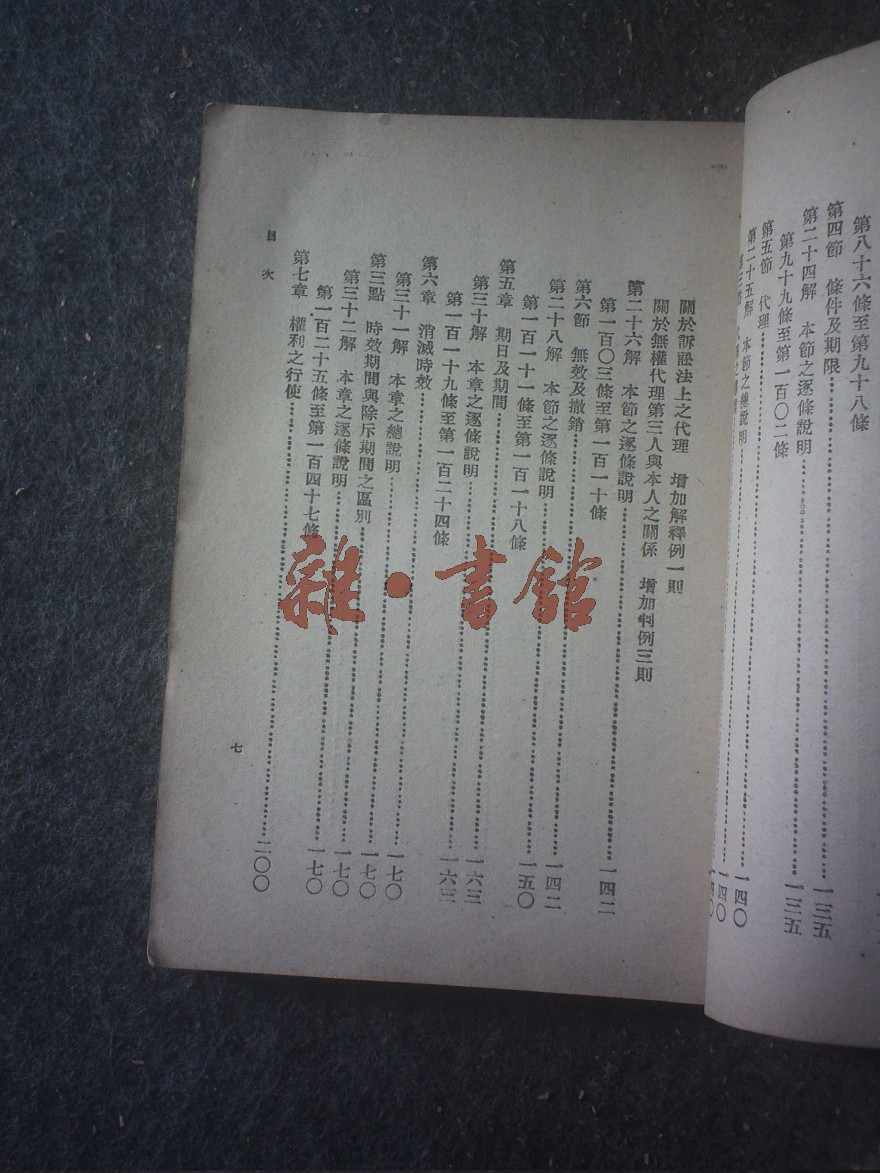 第八十六條至第九十八條
第四節 條件及期限……一三五
第二十四解 本節之逐條說明……一三五
第九十九條至第一百〇二條
第五節 代理……一四〇
第二十五解 本節之總說明……一四〇
關於訴訟法上之代理 增加解釋例一則
關於無權代理第三人與本人之關係 增加判例三則
第二十六解 本節之逐條說明……一四二
第一百〇三條至第一百一十條
第六節 無效及撤銷……一四二
第二十八解 本節之逐條說明……一五〇
第一百一十一條至第一百一十八條
第五章 期日及期間……一六三
第三十解 本章之逐條說明……一六三
第一百一十九條至第一百二十四條
第六章 消滅時效……一七〇
第三十一解 本章之總說明……一七〇
第三點 時效期間與除斥期間之區別……一七〇
第三十二解 本章之逐條說明……一七〇
第一百二十五條至第一百四十七條
第七章 權利之行使……二〇〇
目次
七
雜·書館